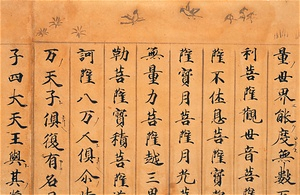 量世界能度無數
利菩薩觀世音菩薩
薩不休息菩薩
薩寶月菩薩月光
無量力菩薩越三
勒菩薩寶積菩薩
訶薩八万人俱尒
万天子俱復有名
子四大天王與其